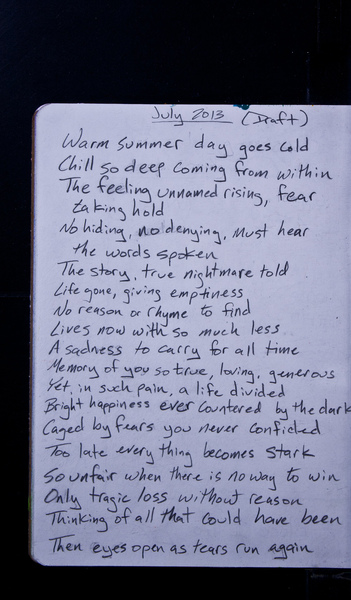 July 2013 (Draft)
Warm summer day goes cold
Chill so deep coming from within
The feeling unnamed rising, fear
taking hold
No hiding, no denying, Must hear
the words spoken
The story, true nightmare told
Life gone, giving emptiness
No reason or rhyme to find
Lives now with so much less
A sadness to carry for all time
Memory of you so true, loving, generous
Yet, in such pain, a life divided
Bright happiness ever countered by the dark
Caged by fears you never confided
Too late every thing becomes stark
So unfair when there is no way to win
Only tragic loss without reason
Thinking of all that could have been
Then eyes open as tears run again